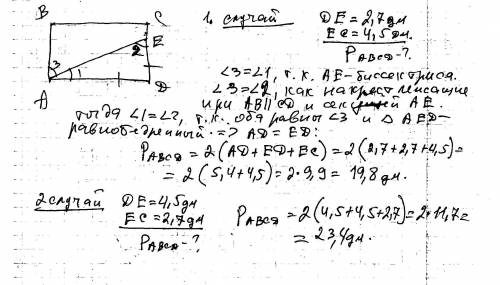 B C
E
3 1 2
A D
1. случай DE = 2,7 дм
EC = 4,5 дм.
P ABCD - ?
∠3=∠1, т.к. AE-биссектриса.
∠3=∠2, как накрест лежащие
при AB∥CD и секущей AE.
тогда ∠1=∠2, т.к. оба равны ∠3 и △ AED-
равнобедренный => AD = ED:
P ABCD = 2(AD+ED+EC) = 2(2,7+2,7+4,5)=
= 2(5,4+4,5)= 2·9,9 = 19,8 дм.
2 случай DE = 4,5 дм
EC = 2,7 дм
P ABCD - ?
P ABCD = 2(4,5+4,5+2,7)=2·11,7=
= 23,4 дм.